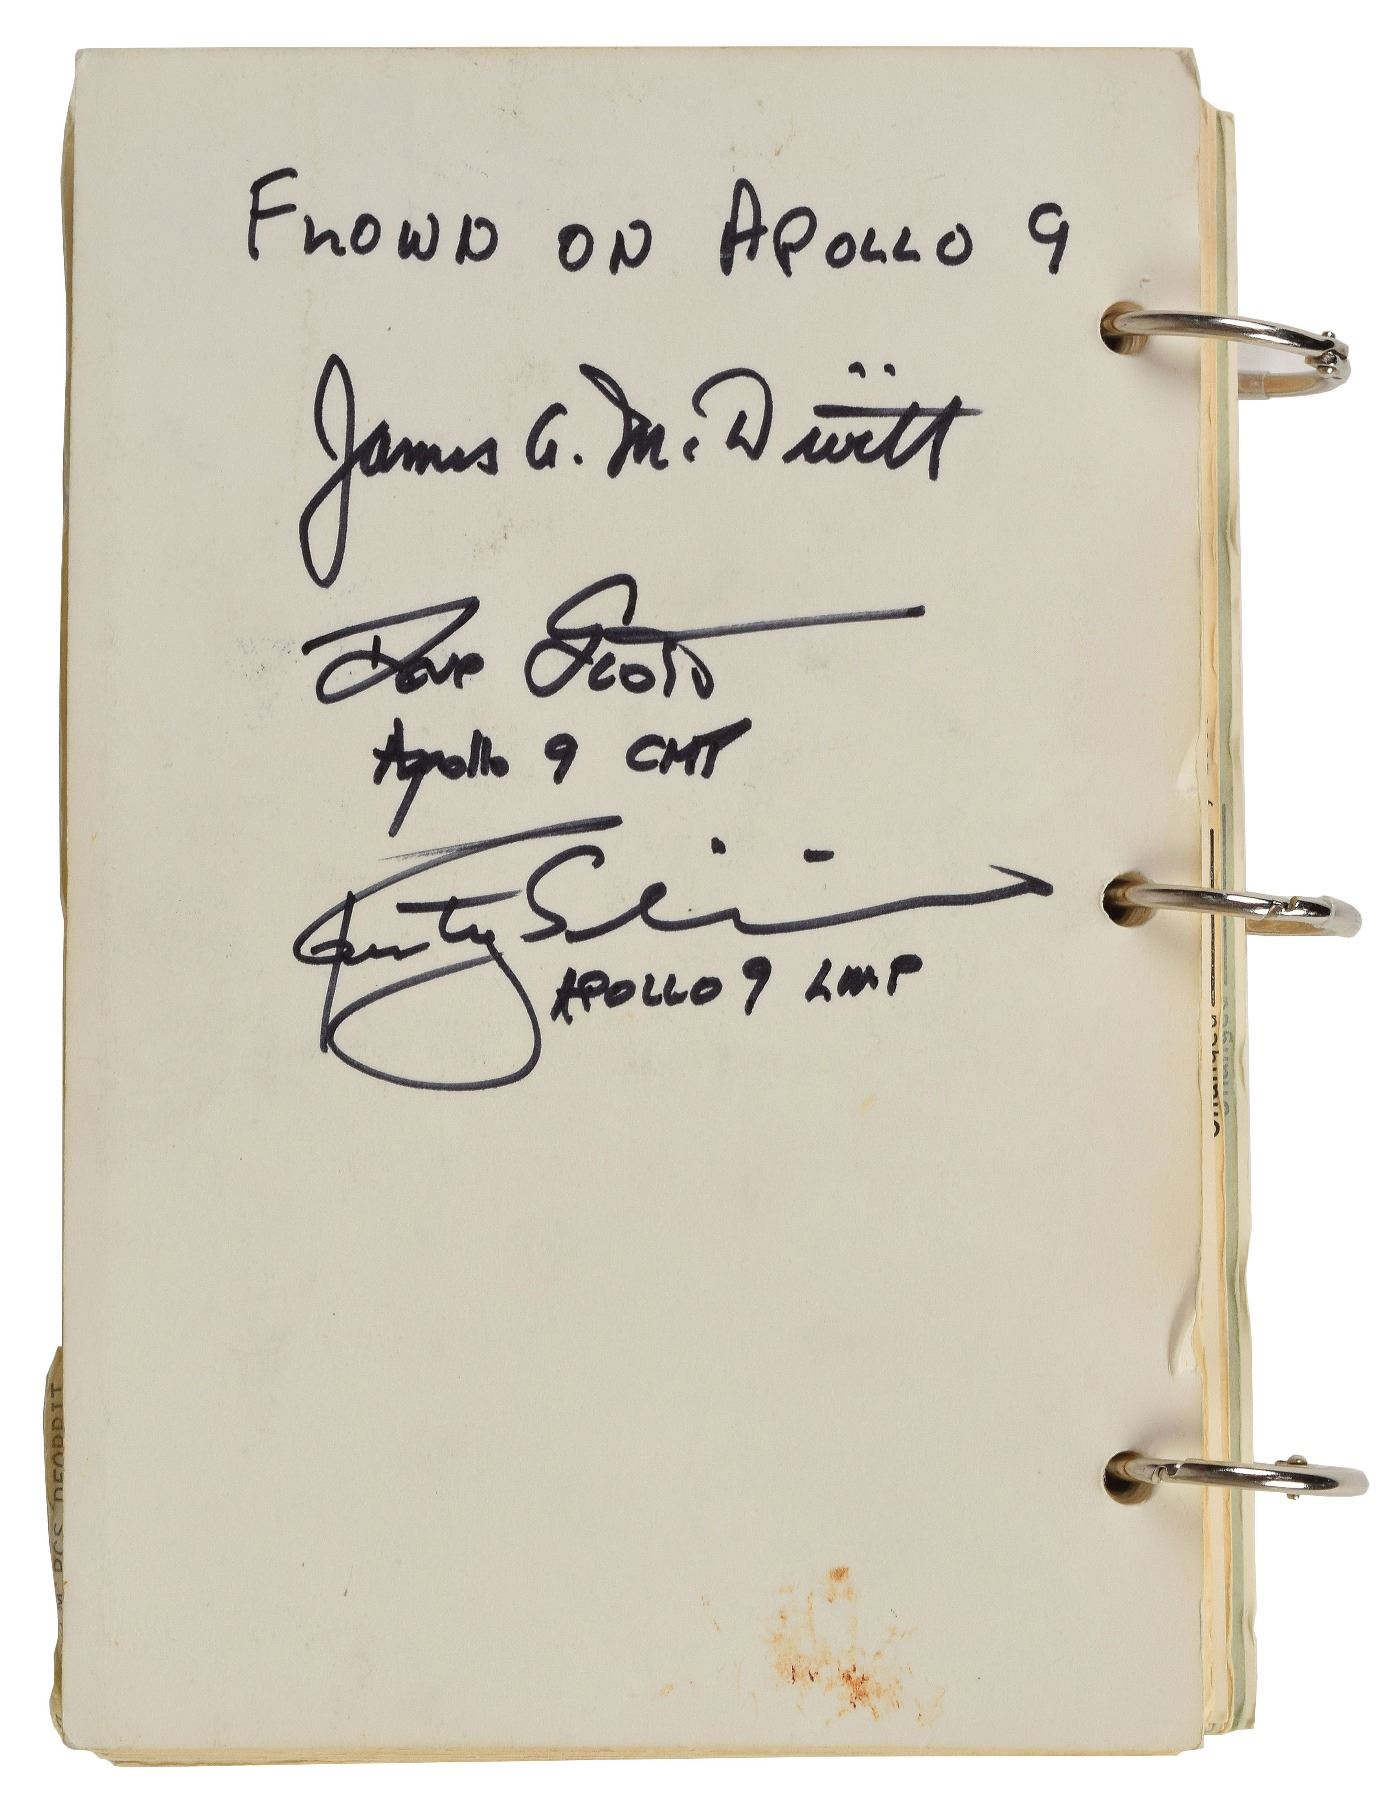 FLOWN ON APOLLO 9
James A. McDivitt
Dave Scott
Apollo 9 CMP
Rusty Schweickart
APOLLO 9 LMP
Changed
Changed
RCS DEORBIT